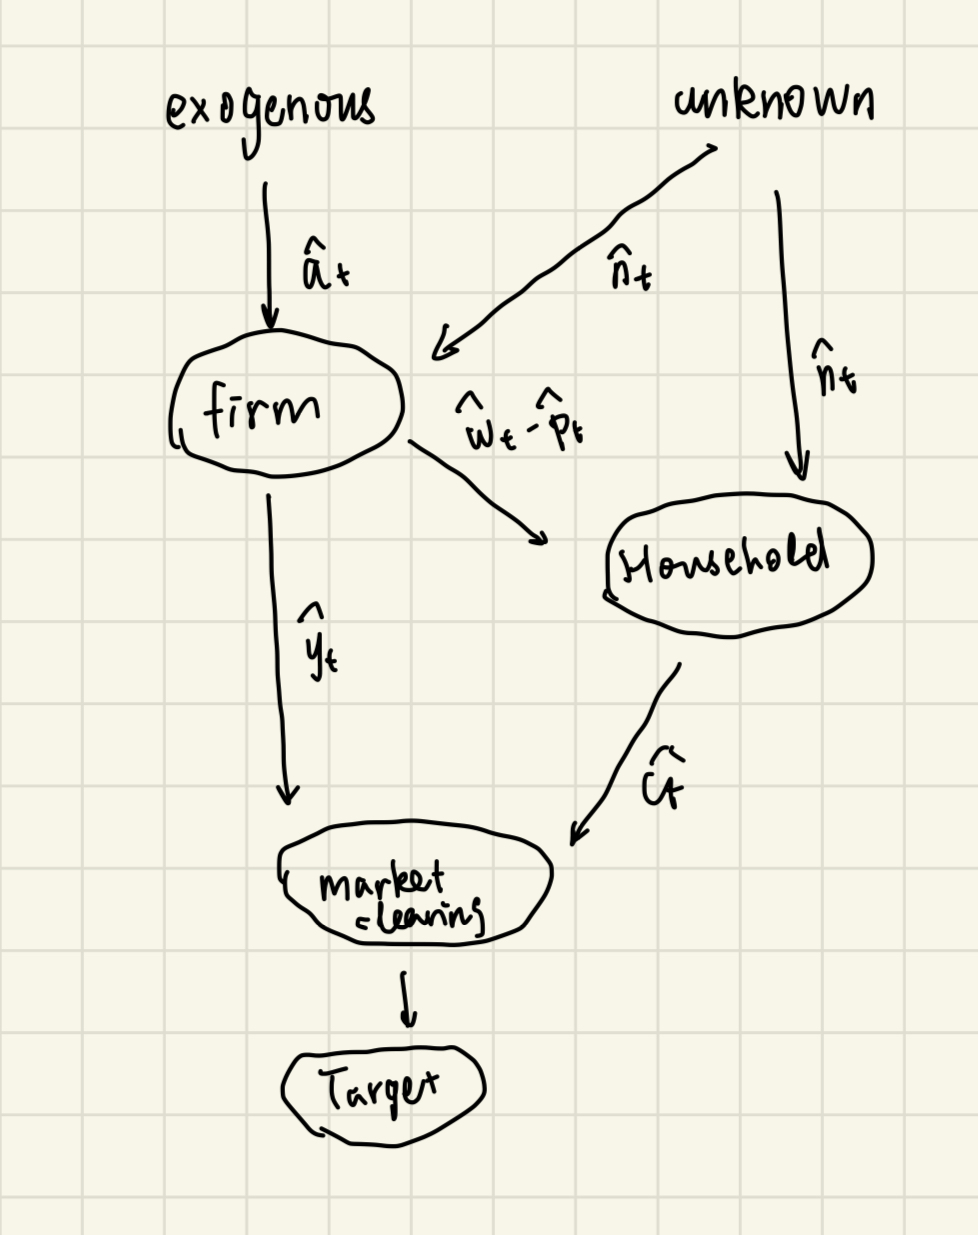 exogenous
unknown
â_t
n̂_t
n̂_t
firm
ŵ_t - p̂_t
Household
ŷ_t
ĉ_t
market
clearing
Target